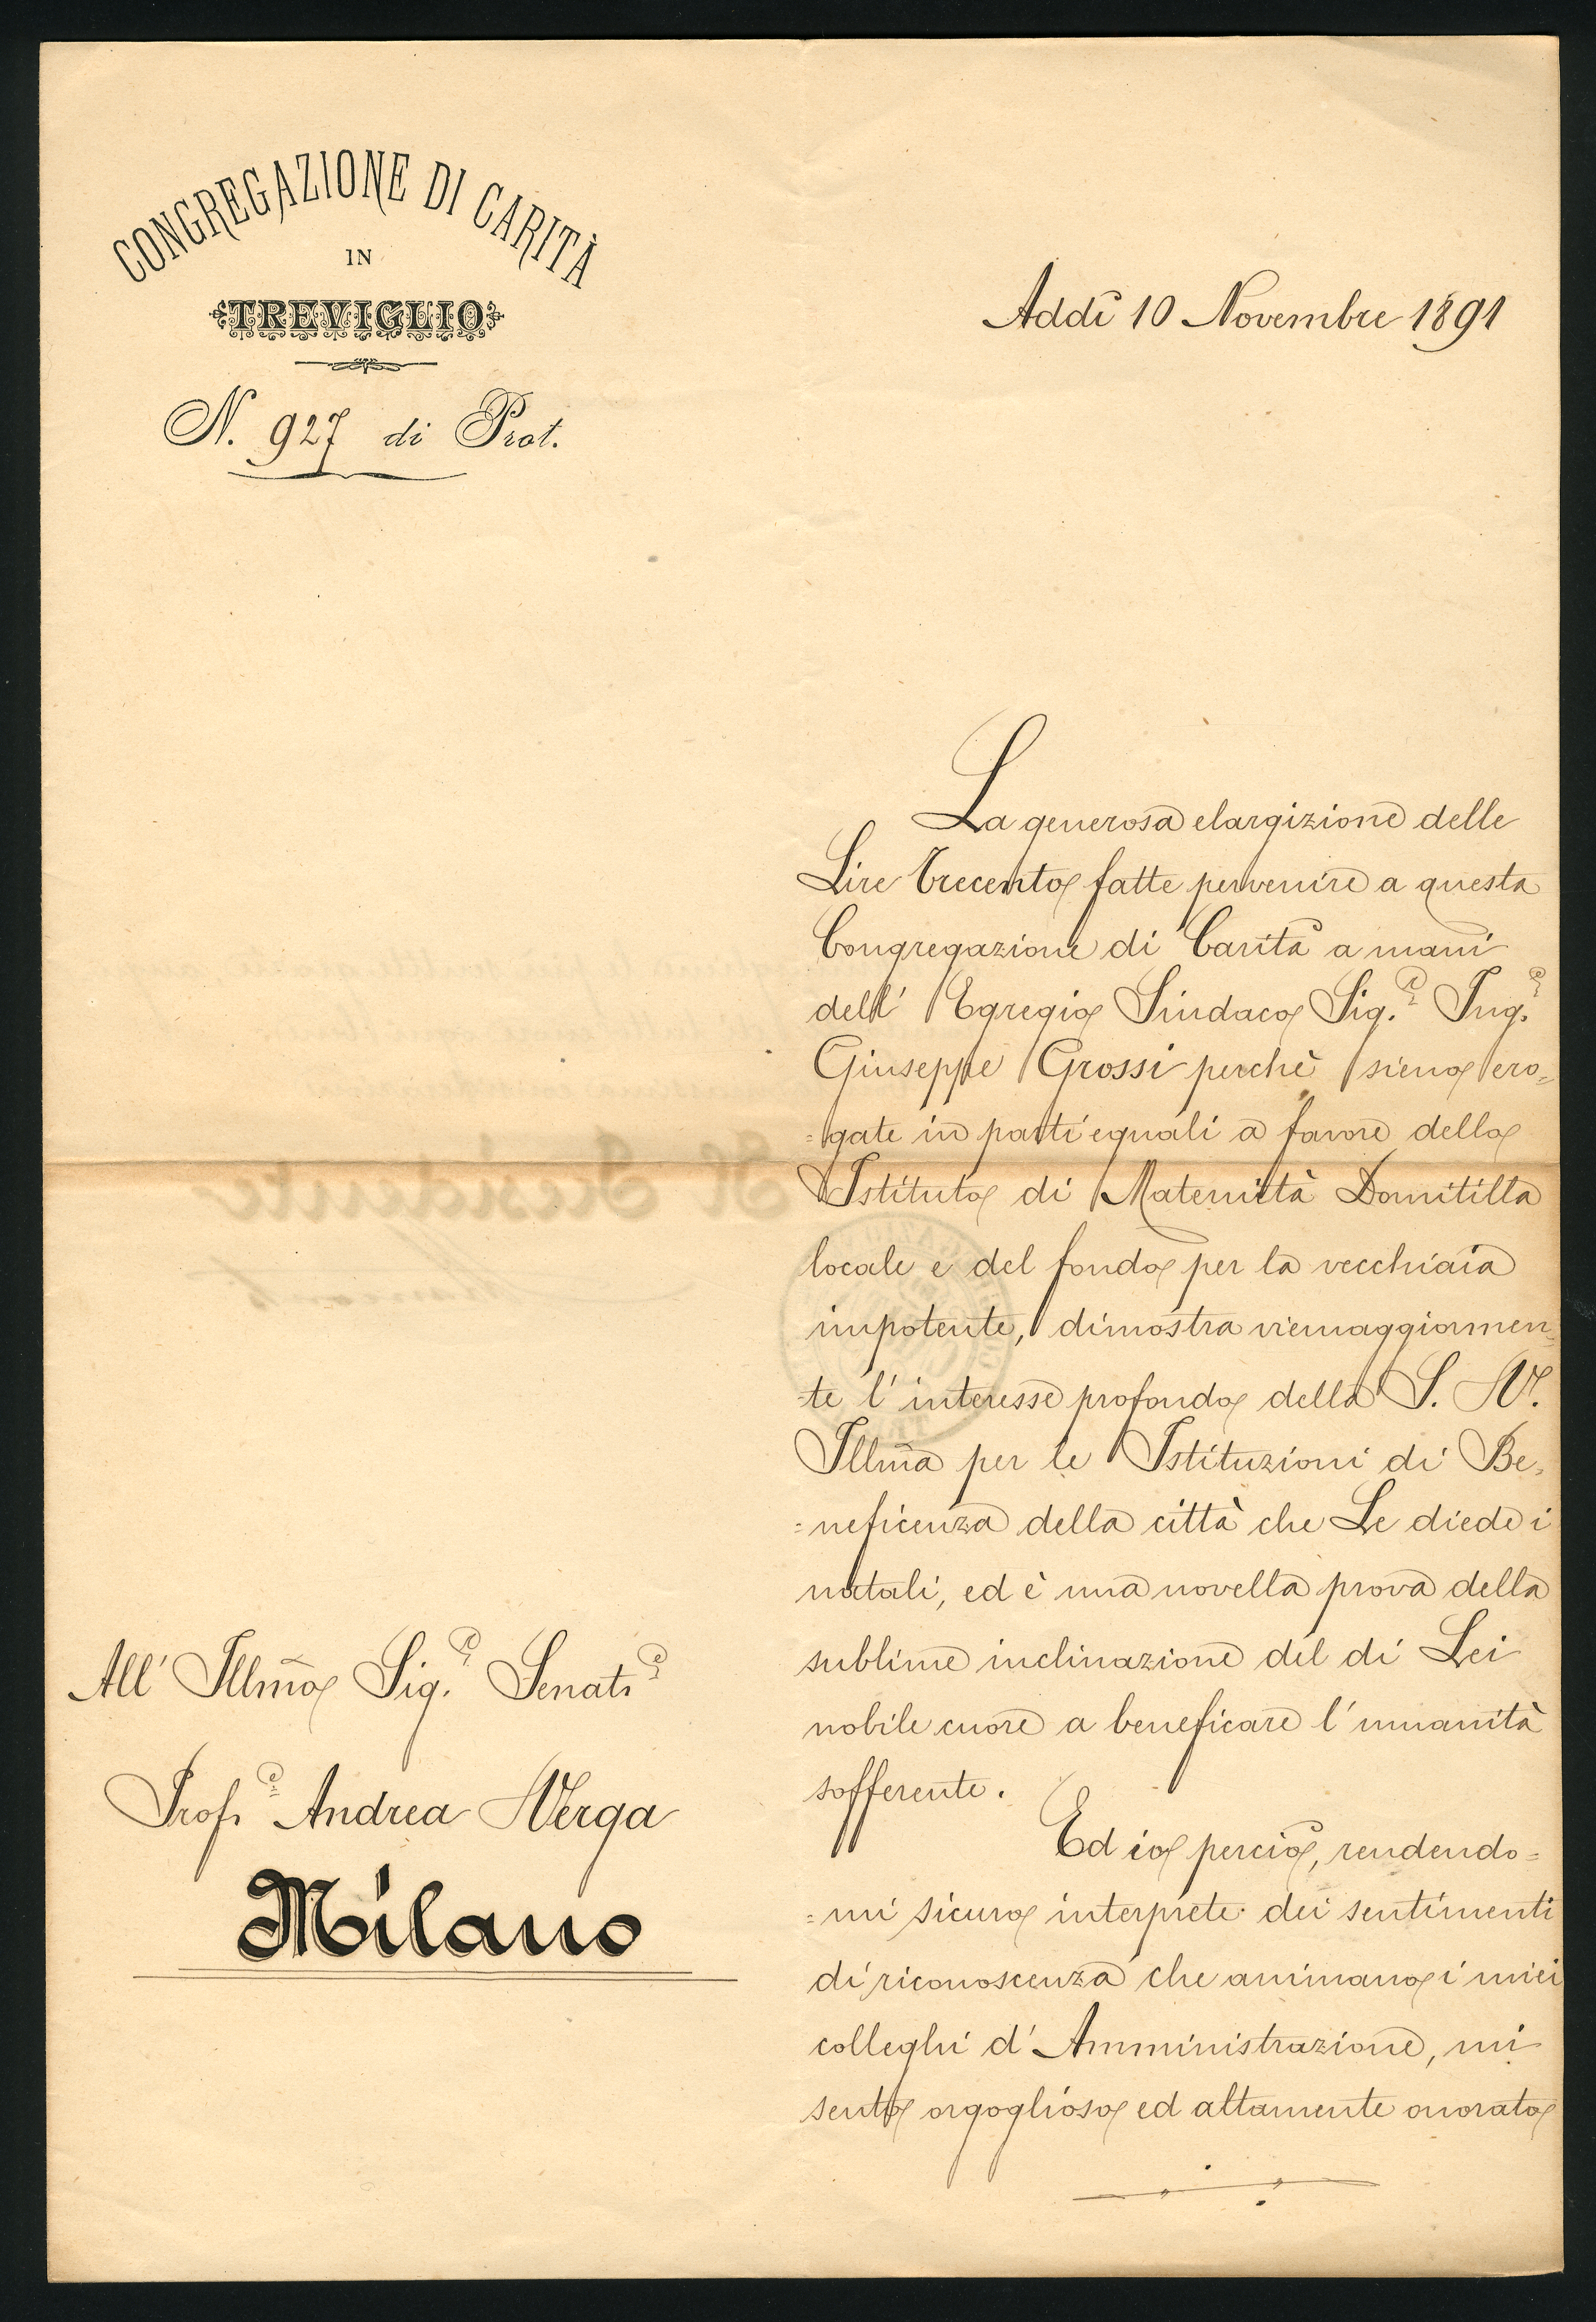 CONGREGAZIONE DI CARITÀ
IN
TREVIGLIO
N. 927 di Prot.
Addì 10 Novembre 1891
La generosa elargizione delle
Lire Trecento fatte pervenire a questa
Congregazione di Carità a mani
dell' Egregio Sindaco Sig.r Ing.e
Giuseppe Grossi perchè sieno ero=
=gate in parti eguali a favore dello
Istituto di Maternità Domitilla
locale e del fondo per la vecchiaia
impotente, dimostra viemaggiormen=
te l'interesse profondo della S. V.
Illm̃a per le Istituzioni di Be=
=neficenza della città che Le diede i
natali, ed è una novella prova della
sublime inclinazione del di Lei
nobile cuore a beneficare l'umanità
sofferente.
Ed io perciò, rendendo=
=mi sicuro interprete dei sentimenti
di riconoscenza che animano i miei
colleghi d'Amministrazione, mi
sento orgoglioso ed altamente onorato
All' Illm̃o Sig.r Senat.e
Prof.e Andrea Verga
Milano